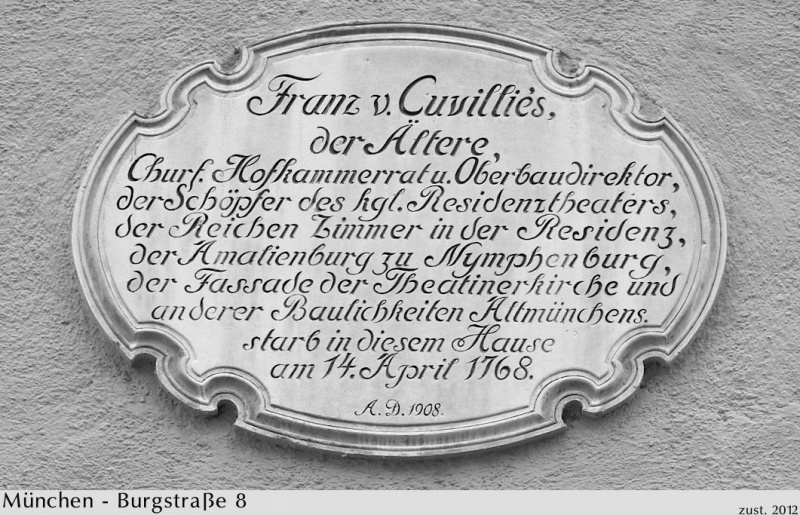 Franz v. Cuvilliés,
der Ältere,
Churf. Hofkammerrat u. Oberbaudirektor,
der Schöpfer des kgl. Residenztheaters,
der Reichen Zimmer in der Residenz,
der Amalienburg zu Nymphenburg,
der Fassade der Theatinerkirche und
anderer Baulichkeiten Altmünchens.
starb in diesem Hause
am 14. April 1768.
A. D. 1908.
München - Burgstraße 8
zust. 2012